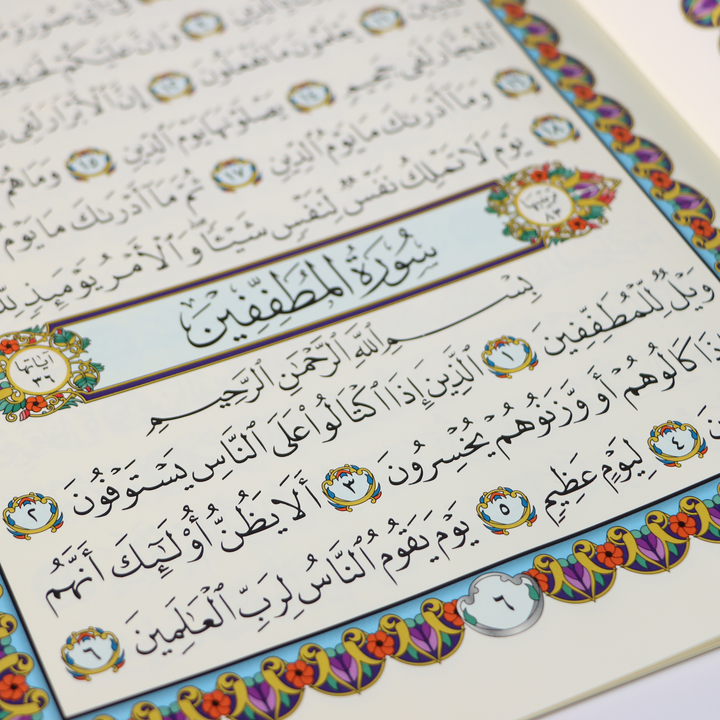 يَعْلَمُونَ مَا تَفْعَلُونَ ١٢ إِنَّ ٱلْأَبْرَارَ لَفِى
ٱلْفُجَّارَ لَفِى جَحِيمٍ ١٤ يَصْلَوْنَهَا يَوْمَ ٱلدِّينِ ١٥ وَمَا هُمْ
١٦ وَمَآ أَدْرَىٰكَ مَا يَوْمُ ٱلدِّينِ ١٧ ثُمَّ مَآ أَدْرَىٰكَ مَا يَوْمُ
١٨ يَوْمَ لَا تَمْلِكُ نَفْسٌ لِّنَفْسٍ شَيْـًٔا وَٱلْأَمْرُ يَوْمَئِذٍ لِّلَّهِ
تَرْتِيبُهَا ٨٣ سُورَةُ المُطَفِّفِينَ آيَاتُهَا ٣٦
بِسْمِ ٱللَّهِ ٱلرَّحْمَٰنِ ٱلرَّحِيمِ
وَيْلٌ لِّلْمُطَفِّفِينَ ١ ٱلَّذِينَ إِذَا ٱكْتَالُوا۟ عَلَى ٱلنَّاسِ يَسْتَوْفُونَ ٢
كَالُوهُمْ أَو وَّزَنُوهُمْ يُخْسِرُونَ ٣ أَلَا يَظُنُّ أُو۟لَٰٓئِكَ أَنَّهُم
٤ لِيَوْمٍ عَظِيمٍ ٥ يَوْمَ يَقُومُ ٱلنَّاسُ لِرَبِّ ٱلْعَٰلَمِينَ ٦
٦